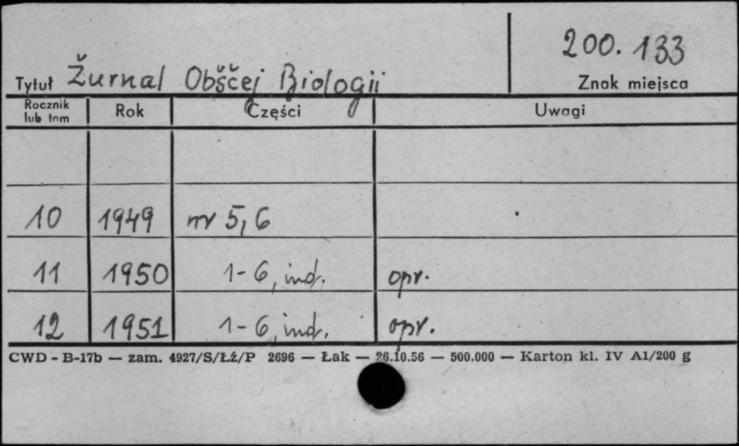 200.133
Tytuł Žurnal Obščej Biologii Znak miejsca
Rocznik lub tom Rok Części Uwagi
10 1949 nr 5, 6
11 1950 1-6, ind. opr.
12 1951 1-6, ind. opr.
CWD - B-17b — zam. 4927/S/Łź/P 2696 — Łak — 26.10.56 — 500.000 — Karton kl. IV A1/200 g